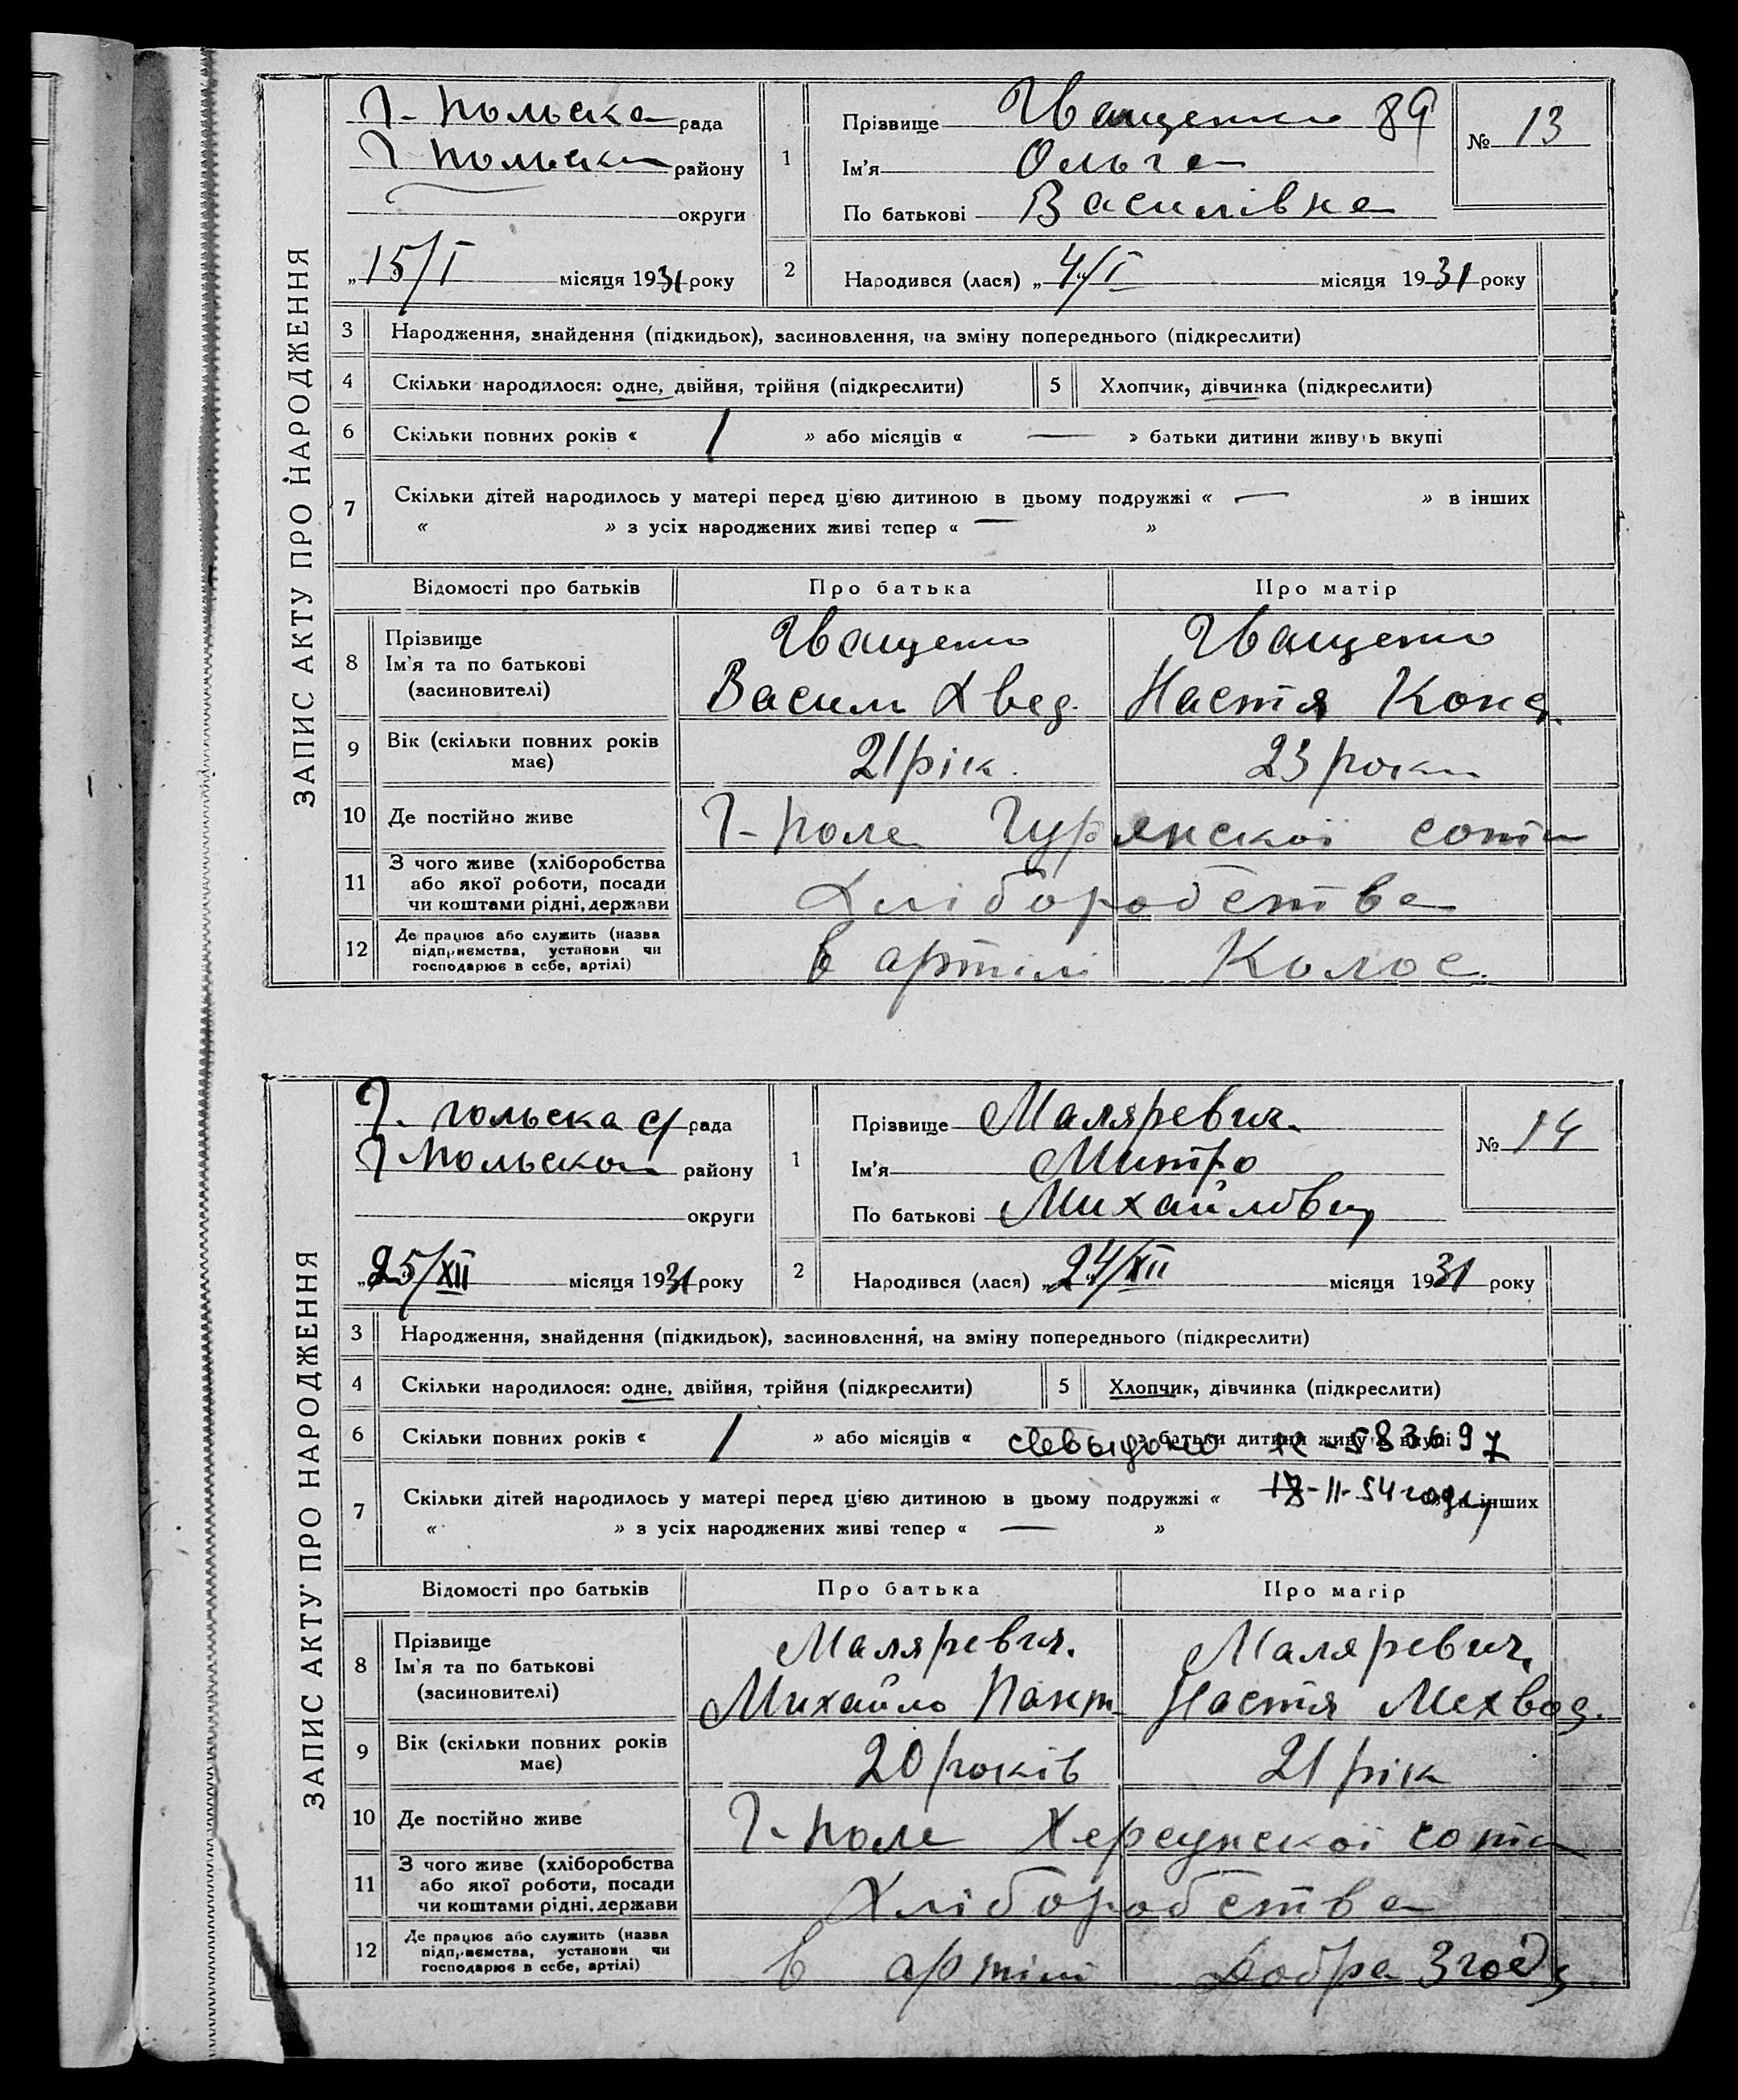 ЗАПИС АКТУ ПРО НАРОДЖЕННЯ
Г-польска рада
Г польски району
округи
„15/I місяця 1931 року
1 Прізвище Іващенко 89
Ім'я Ольга
По батькові Василівна
№ 13
2 Народився (лася) „4/I місяця 1931 року
3 Народження, знайдення (підкидьок), засиновлення, на зміну попереднього (підкреслити)
4 Скільки народилося: одне, двійня, трійня (підкреслити) 5 Хлопчик, дівчинка (підкреслити)
6 Скільки повних років « 1 » або місяців « — » батьки дитини живуть вкупі
7 Скільки дітей народилось у матері перед цією дитиною в цьому подружжі « — » в інших
« » з усіх народжених живі тепер « — »
Відомості про батьків Про батька Про матір
8 Прізвище
Ім'я та по батькові
(засиновителі)
Іващенко
Василь Хвед.
Іващенко
Настя Конд.
9 Вік (скільки повних років має) 21 рік. 23 роки
10 Де постійно живе Г-поле Гурянскої сотн
11 З чого живе (хліборобства
або якої роботи, посади
чи коштами рідні, держави
Хліборобства
12 Де працює або служить (назва
підприємства, установи чи
господарює в себе, артілі)
в артілі Колос.
ЗАПИС АКТУ ПРО НАРОДЖЕННЯ
Г. польска с/рада
Г Польско району
округи
„25/XII місяця 1931 року
1 Прізвище Маляревич.
Ім'я Митро
По батькові Михайлович
№ 14
2 Народився (лася) „24/XII місяця 1931 року
3 Народження, знайдення (підкидьок), засиновлення, на зміну попереднього (підкреслити)
4 Скільки народилося: одне, двійня, трійня (підкреслити) 5 Хлопчик, дівчинка (підкреслити)
6 Скільки повних років « 1 » або місяців « » батьки дитини живуть вкупі
583697
7 Скільки дітей народилось у матері перед цією дитиною в цьому подружжі « » в інших
18-11-54 году
« » з усіх народжених живі тепер « — »
Відомості про батьків Про батька Про матір
8 Прізвище
Ім'я та по батькові
(засиновителі)
Маляревич.
Михайло Пант.
Маляревич,
Настя Мехвод.
9 Вік (скільки повних років має) 20 років 21 рік
10 Де постійно живе Г-поле Херсунскої сотн
11 З чого живе (хліборобства
або якої роботи, посади
чи коштами рідні, держави
Хліборобства
12 Де працює або служить (назва
підприємства, установи чи
господарює в себе, артілі)
в артілі Добра Згода